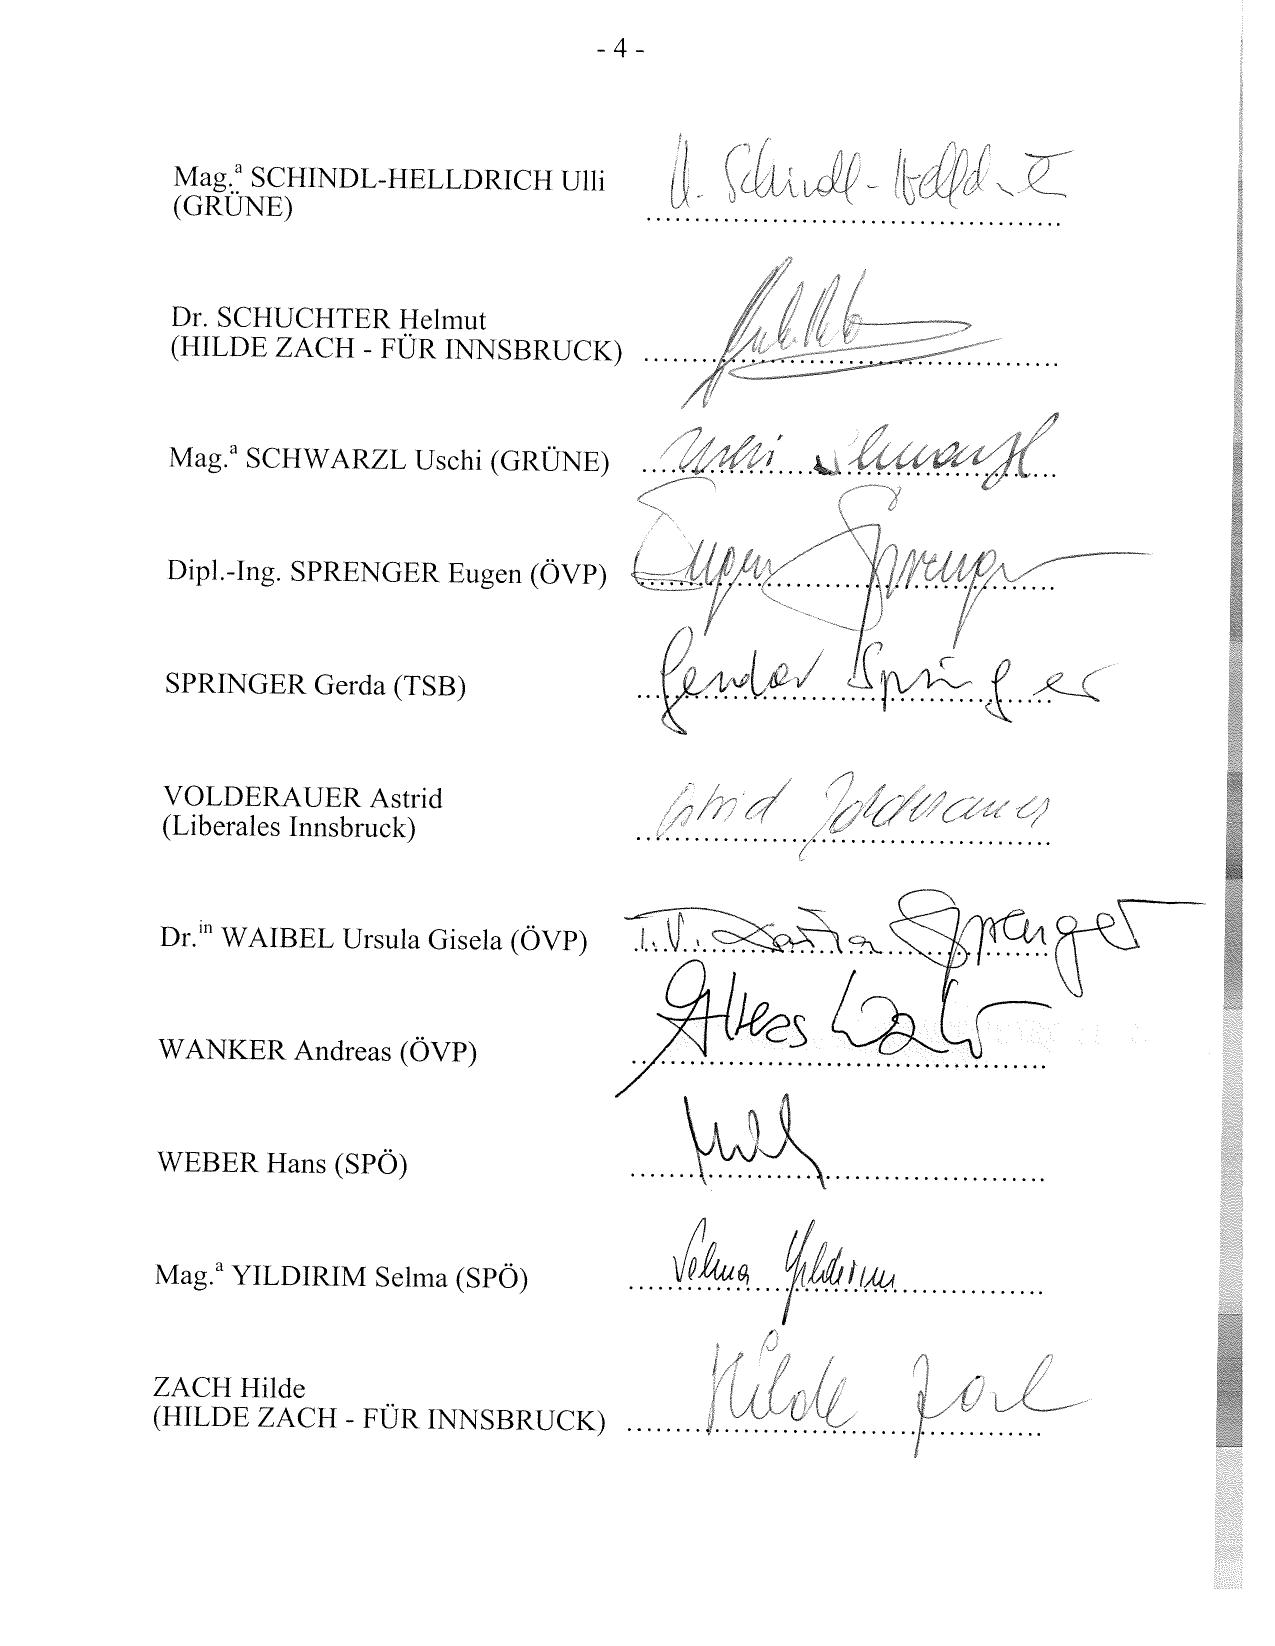 - 4 -
Mag.ª SCHINDL-HELLDRICH Ulli U. Schindl-Helld
(GRÜNE)
Dr. SCHUCHTER Helmut
(HILDE ZACH - FÜR INNSBRUCK)
Mag.ª SCHWARZL Uschi (GRÜNE) Uschi Schwarzl
Dipl.-Ing. SPRENGER Eugen (ÖVP) Eugen Sprenger
SPRINGER Gerda (TSB) Gerda Springer
VOLDERAUER Astrid Astrid Volderauer
(Liberales Innsbruck)
Dr.ⁱⁿ WAIBEL Ursula Gisela (ÖVP) i.V. Sprenger
WANKER Andreas (ÖVP) Andreas
WEBER Hans (SPÖ)
Mag.ª YILDIRIM Selma (SPÖ) Selma Yildirim
ZACH Hilde Hilde Zach
(HILDE ZACH - FÜR INNSBRUCK)